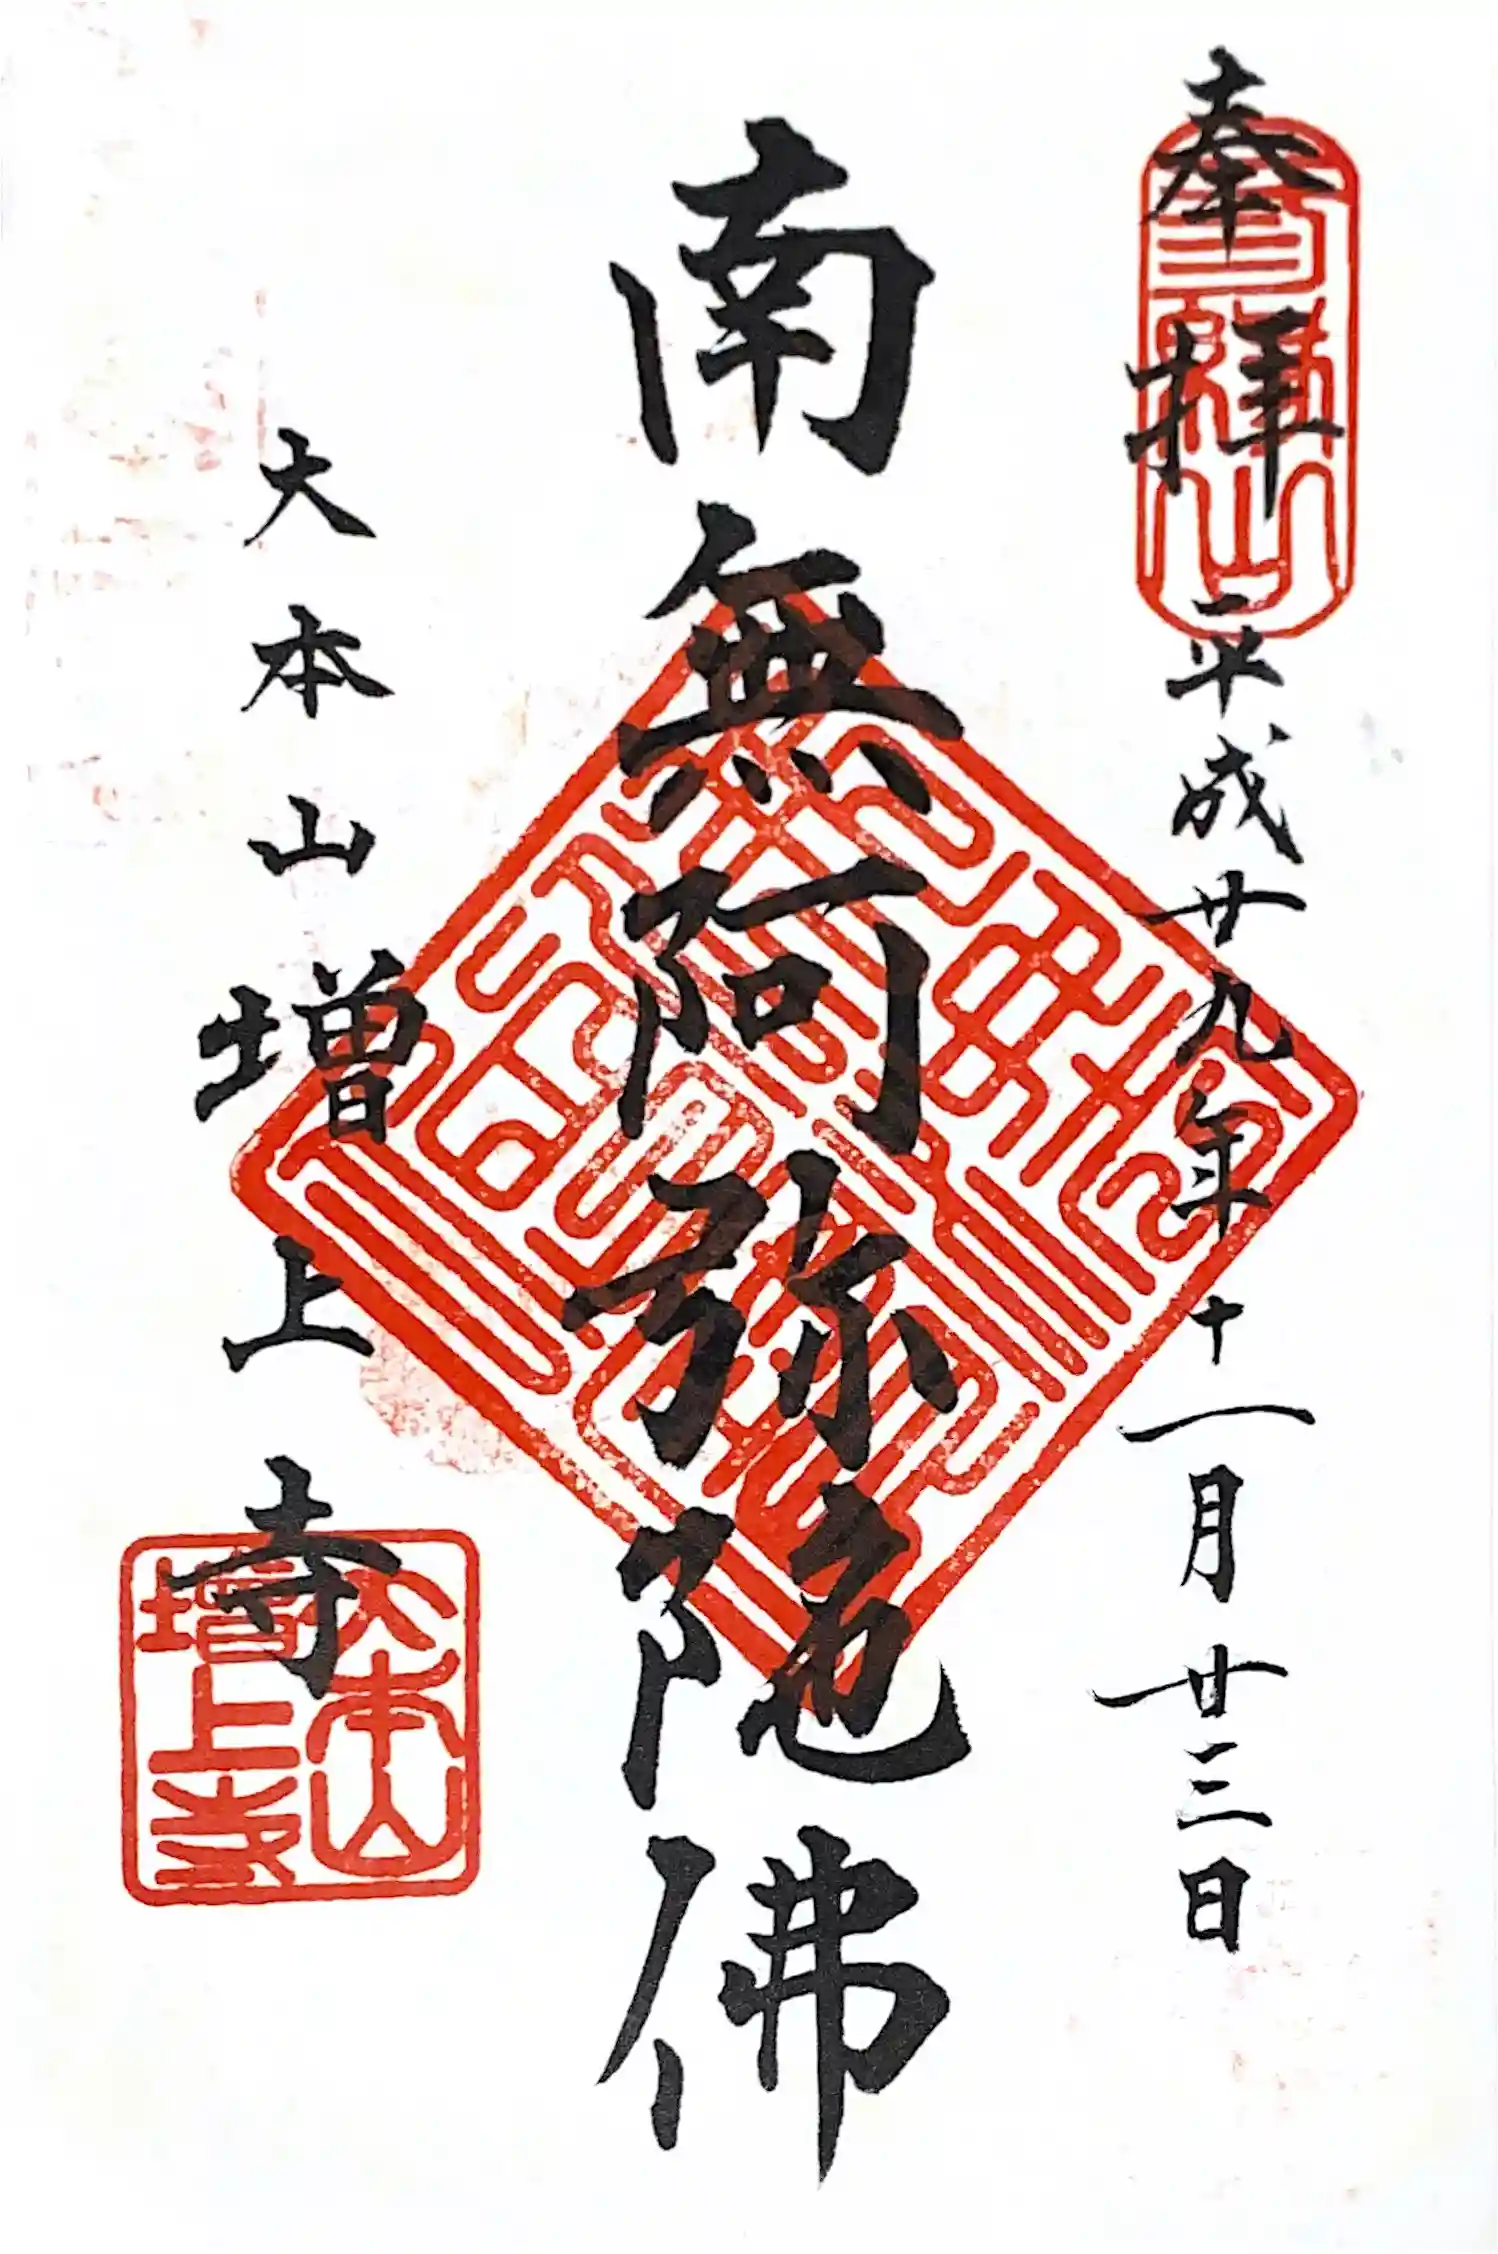 奉拝
平成廿九年十一月廿三日
南無阿弥陀佛
大本山増上寺
大本山
増上寺